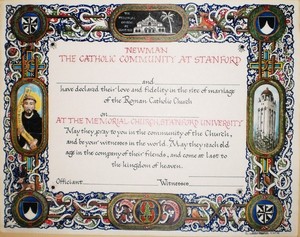 NEWMAN
THE CATHOLIC COMMUNITY AT STANFORD
and
have declared their love and fidelity in the rite of marriage
of the Roman Catholic Church
on
AT THE MEMORIAL CHURCH, STANFORD UNIVERSITY
"May they pray to you in the community of the Church,
and be your witnesses in the world. May they reach old
age in the company of their friends, and come at last to
the kingdom of heaven.
Officiant Witnesses